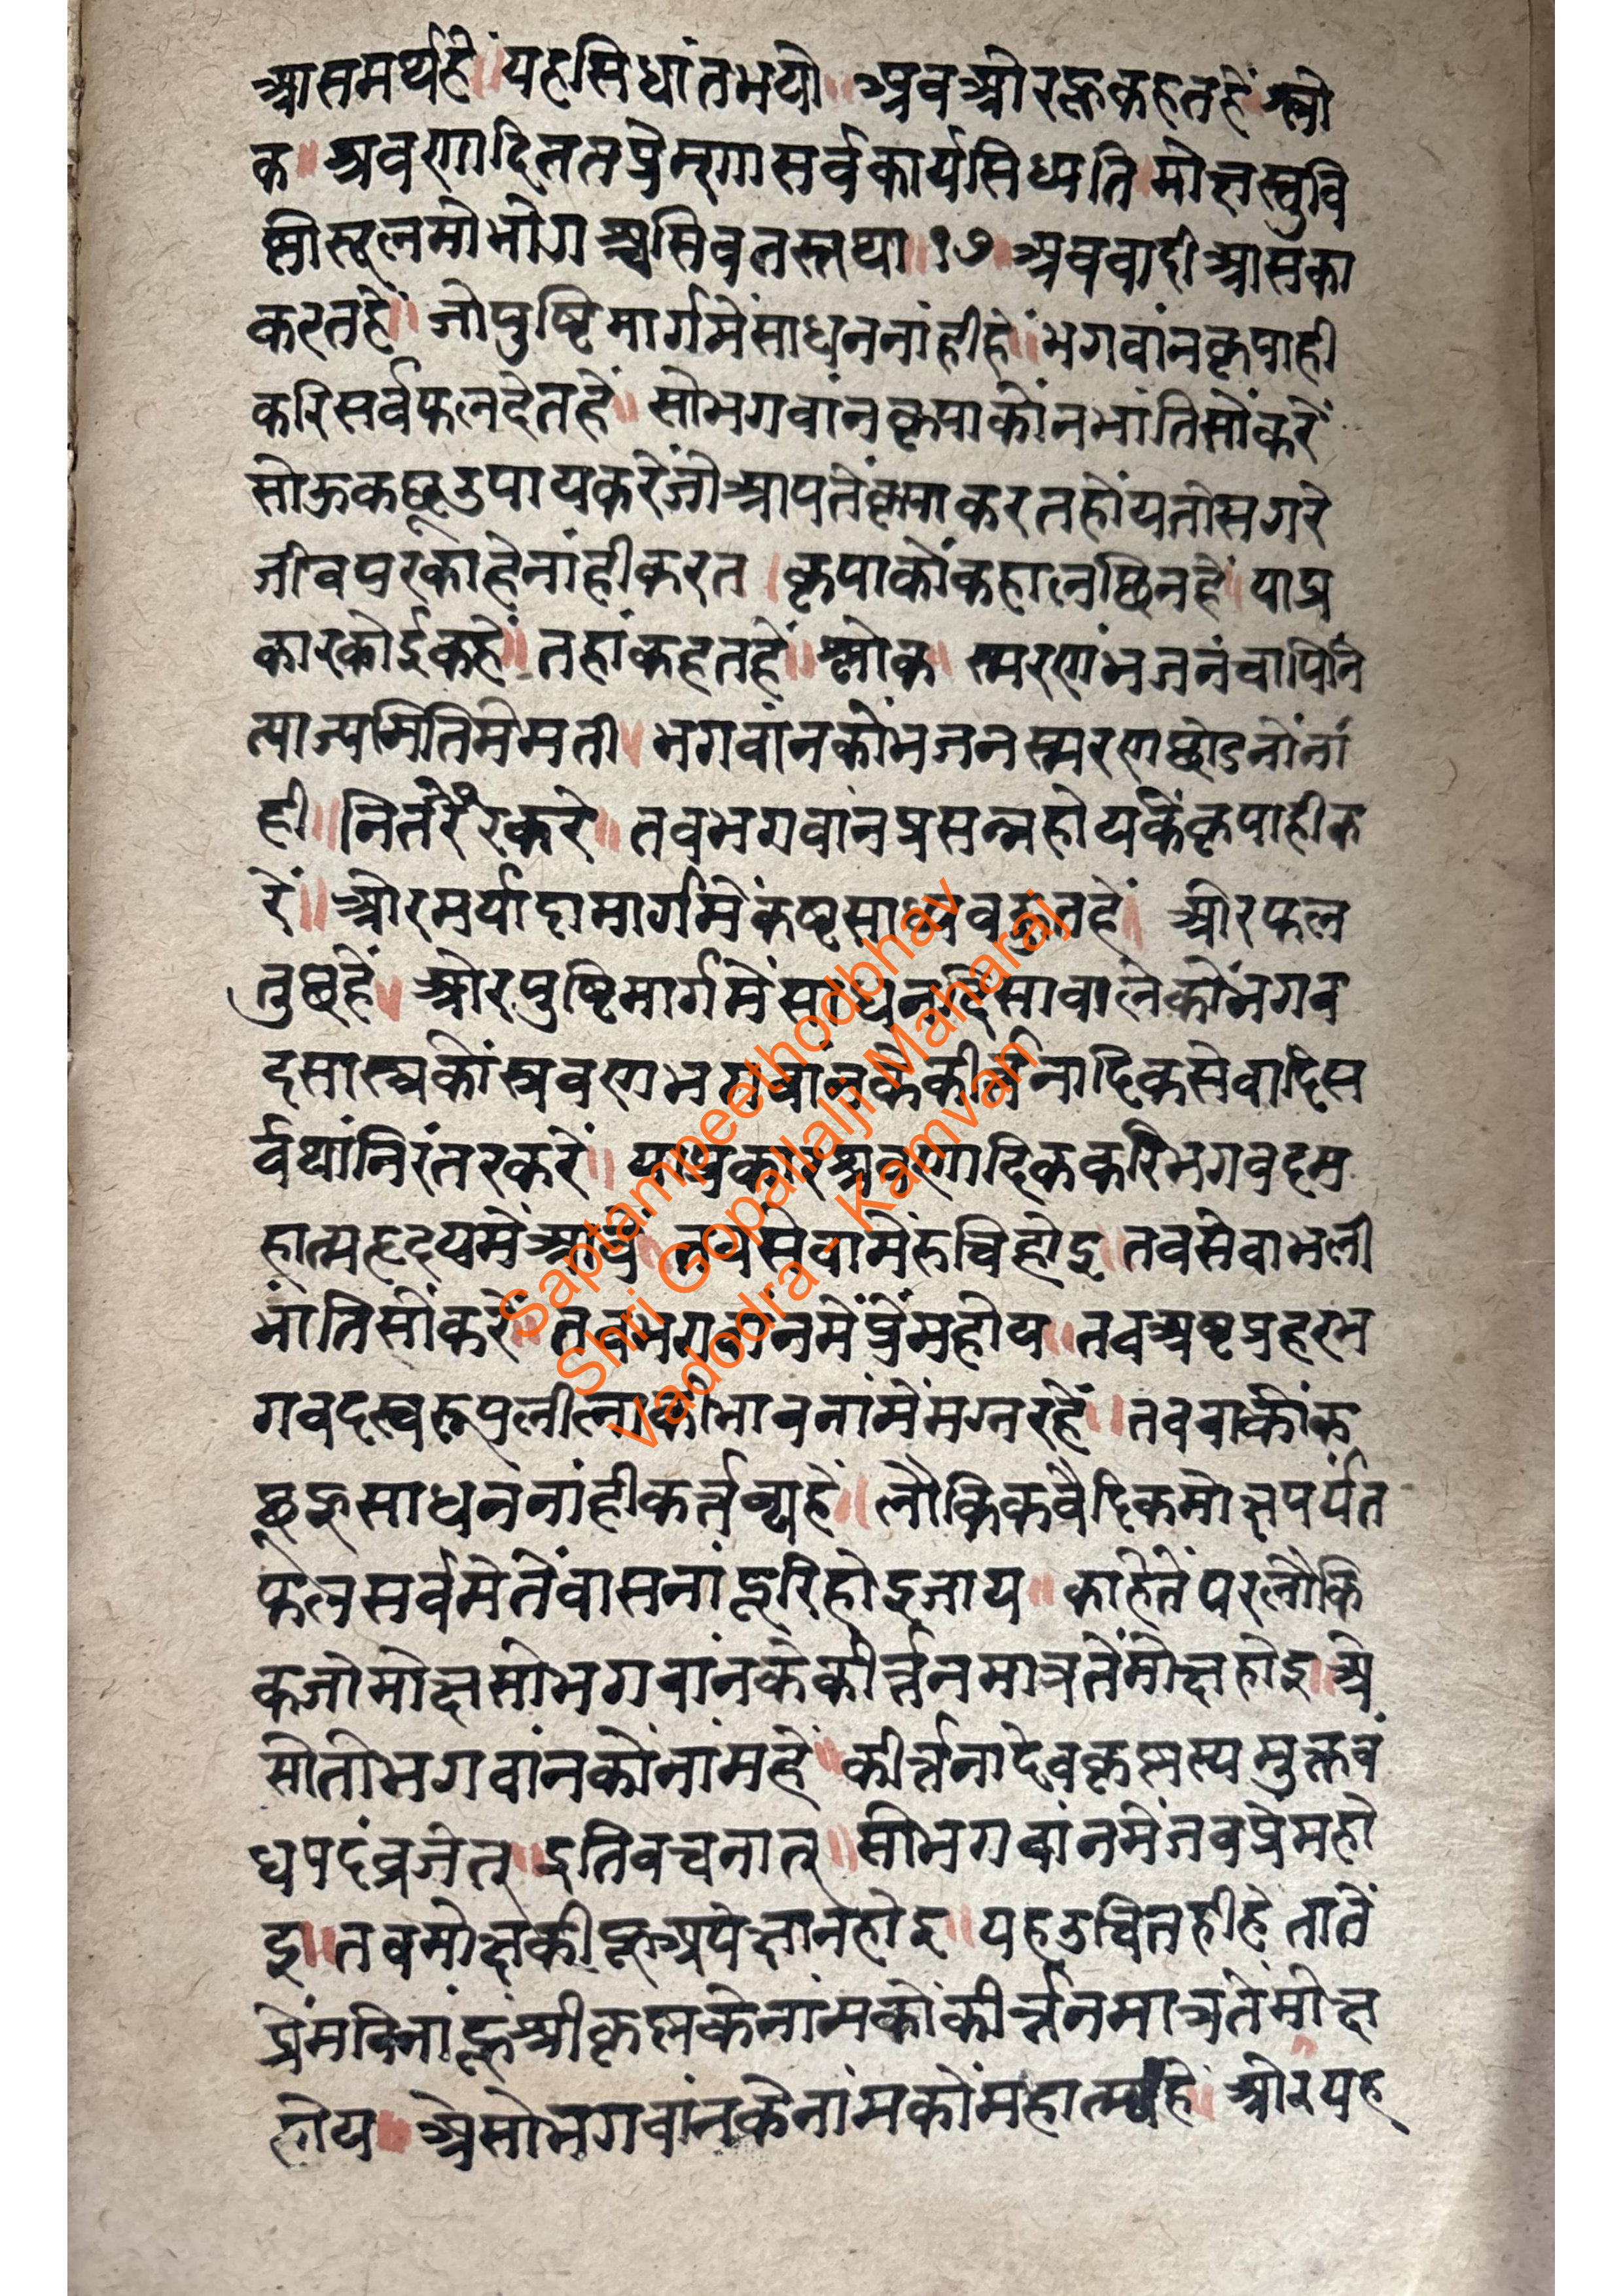 आसमर्थहे ॥ यहसिधांतभयो ॥ अवओरहूकहतहें श्लो
क ॥ श्रवणादिततप्रेम्णासर्वकार्यसिध्यति मोक्षस्तुवि
करतहें ॥ जोपुष्टिमार्गमेंसाधननांहीहें ॥ भगवांनकृपाही
करिसर्वफलदेतहें ॥ सोभगवांनकृपाकोंनभांतिसोंकरें
सोऊकछूउपायकरेंजोआपतेंकृपाकरतहोंयतोसगरे
जीवपरकाहेनांहीकरत । कृपाकोंकहालछिनहें ॥ याप्र
कारकोईकहें ॥ तहांकहतहें ॥ श्लोक ॥ स्मरणंभजनंवापिनि
त्याज्यमितिमेमती ॥ भगवांनकोंभजनस्मरणछोडनोंनां
ही ॥ नितंरेंरकरे ॥ तवभगवांनप्रसन्नहोयकेंकृपाहीक
रें ॥ ओरमर्यादामार्गमेंकष्टसाध्यवहुतहें ॥ ओरफल
तुछहें ॥ ओरपुष्टिमार्गमेंसाधनदिसावालेकोंभगव
दसास्त्रकोंस्रवणभगवांनकेकीर्त्तनादिकसेवादिस
र्वथांनिरंतरकरें ॥ याप्रकारश्रवणादिककरिभगवदम
हात्महृदयमेंआवें ॥ तवसेवामेंरुचिहोइ ॥ तवसेवाभली
भांतिसोंकरें ॥ तवभगवांनमेंप्रेंमहोय ॥ तवअष्टप्रहरभ
गवदस्वरूपलीलाकीभावनांमेंमग्नरहें ॥ तववाकोंक
छूहूसाधननांहीकर्त्तव्यहें ॥ लौकिकवैदिकमोक्षपर्यंत
फलसर्वमेतेंवासनांदूरिहोइजाय ॥ काहेतेंपरलौकि
कजोमोक्षसोभगवांनकेकीर्त्तनमात्रतेंमोक्षहोइ ॥ अे
सोतोभगवांनकोंनांमहें ॥ कीर्त्तनादेवकृष्णस्यमुक्तवं
धपदंव्रजेत् ॥ इतिवचनात् ॥ सोभगवांनमेंजवप्रेमहो
इ ॥ तवमोक्षकीहूअपेक्षानहोइ ॥ यहउचितहीहे तातें
प्रेंमविनांहूश्रीकृष्णकेनांमकोंकीर्त्तनमात्रतेंमोक्ष
होय ॥ अेसोभगवांनकेनांमकोंमहात्म्यहें ॥ ओरयह
Saptampeethodbhav
Shri Gopallalji Maharaj
Vadodra - Kamvan